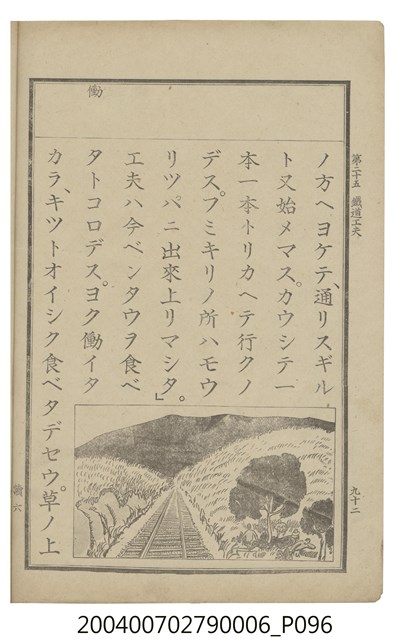 働
第二十五 鐵道工夫
ノ方ヘヨケテ、通リスギル
ト又始メマス。カウシテ一
本一本トリカヘテ行クノ
デス。フミキリノ所ハモウ
リツパニ出來上リマシタ。」
工夫ハ今ベンタウヲ食ベ
タトコロデス。ヨク働イタ
カラ、キツトオイシク食ベタデセウ。草ノ上
九十二
六
200400702790006_P096